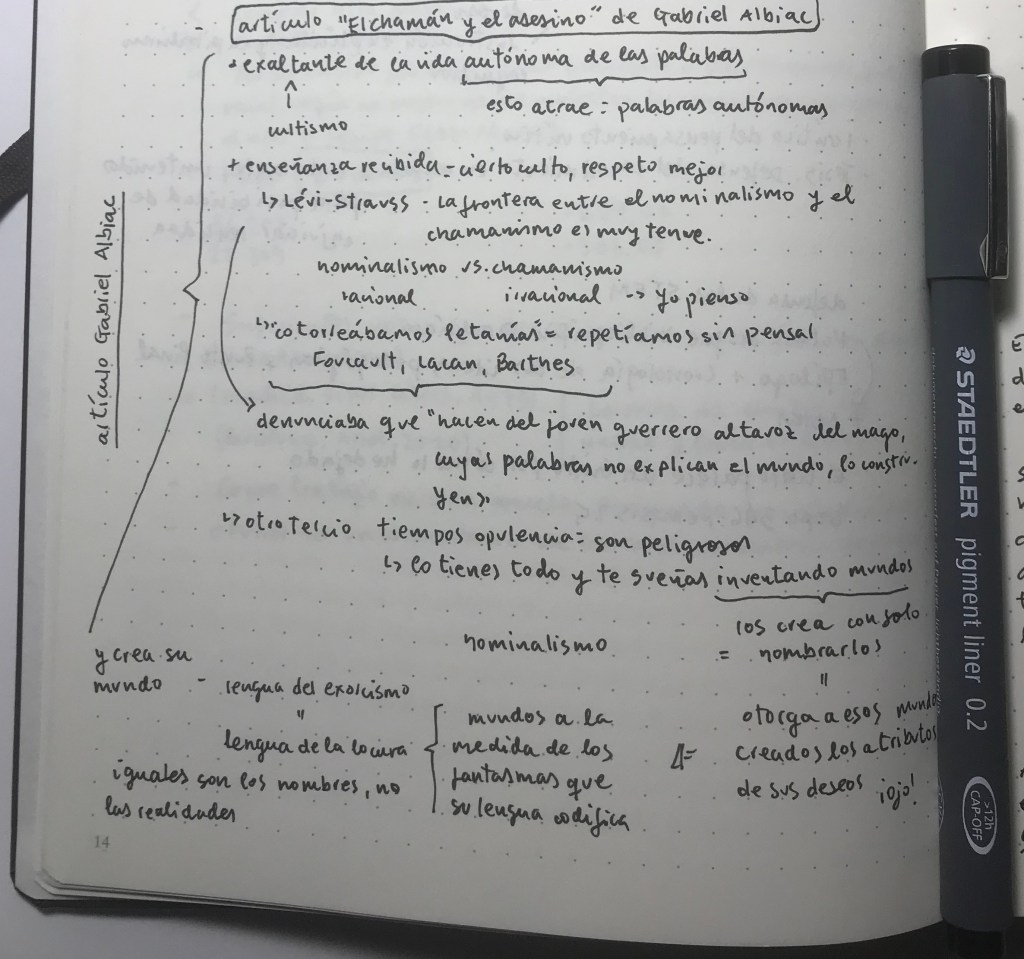 - artículo "El chamán y el asesino" de Gabriel Albiac
artículo Gabriel Albiac
+ exaltante de la vida autónoma de las palabras
cultismo
esto atrae = palabras autónomas
+ enseñanza recibida - cierto culto, respeto mejor
↳ Lévi-Strauss - La frontera entre el nominalismo y el
chamanismo es muy tenue.
nominalismo vs. chamanismo
racional irracional -> yo pienso
↳ "cotorreábamos letanías" = repetíamos sin pensar
Foucault, Lacan, Barthes
denunciaba que "hacen del joven guerrero altavoz del mago,
cuyas palabras no explican el mundo, lo constru-
yen".
↳ otro tercio tiempos opulencia = son peligrosos
↳ lo tienes todo y te sueñas inventando mundos
los crea con solo
= nombrarlos
"
otorga a esos mundos
creados los atributos
de sus deseos ¡ojo!
nominalismo
y crea su
mundo - lengua del exorcismo
"
lengua de la locura
mundos a la
medida de los
fantasmas que
su lengua codifica
iguales son los nombres, no
las realidades
14
STAEDTLER pigment liner 0.2
>12h
CAP-OFF